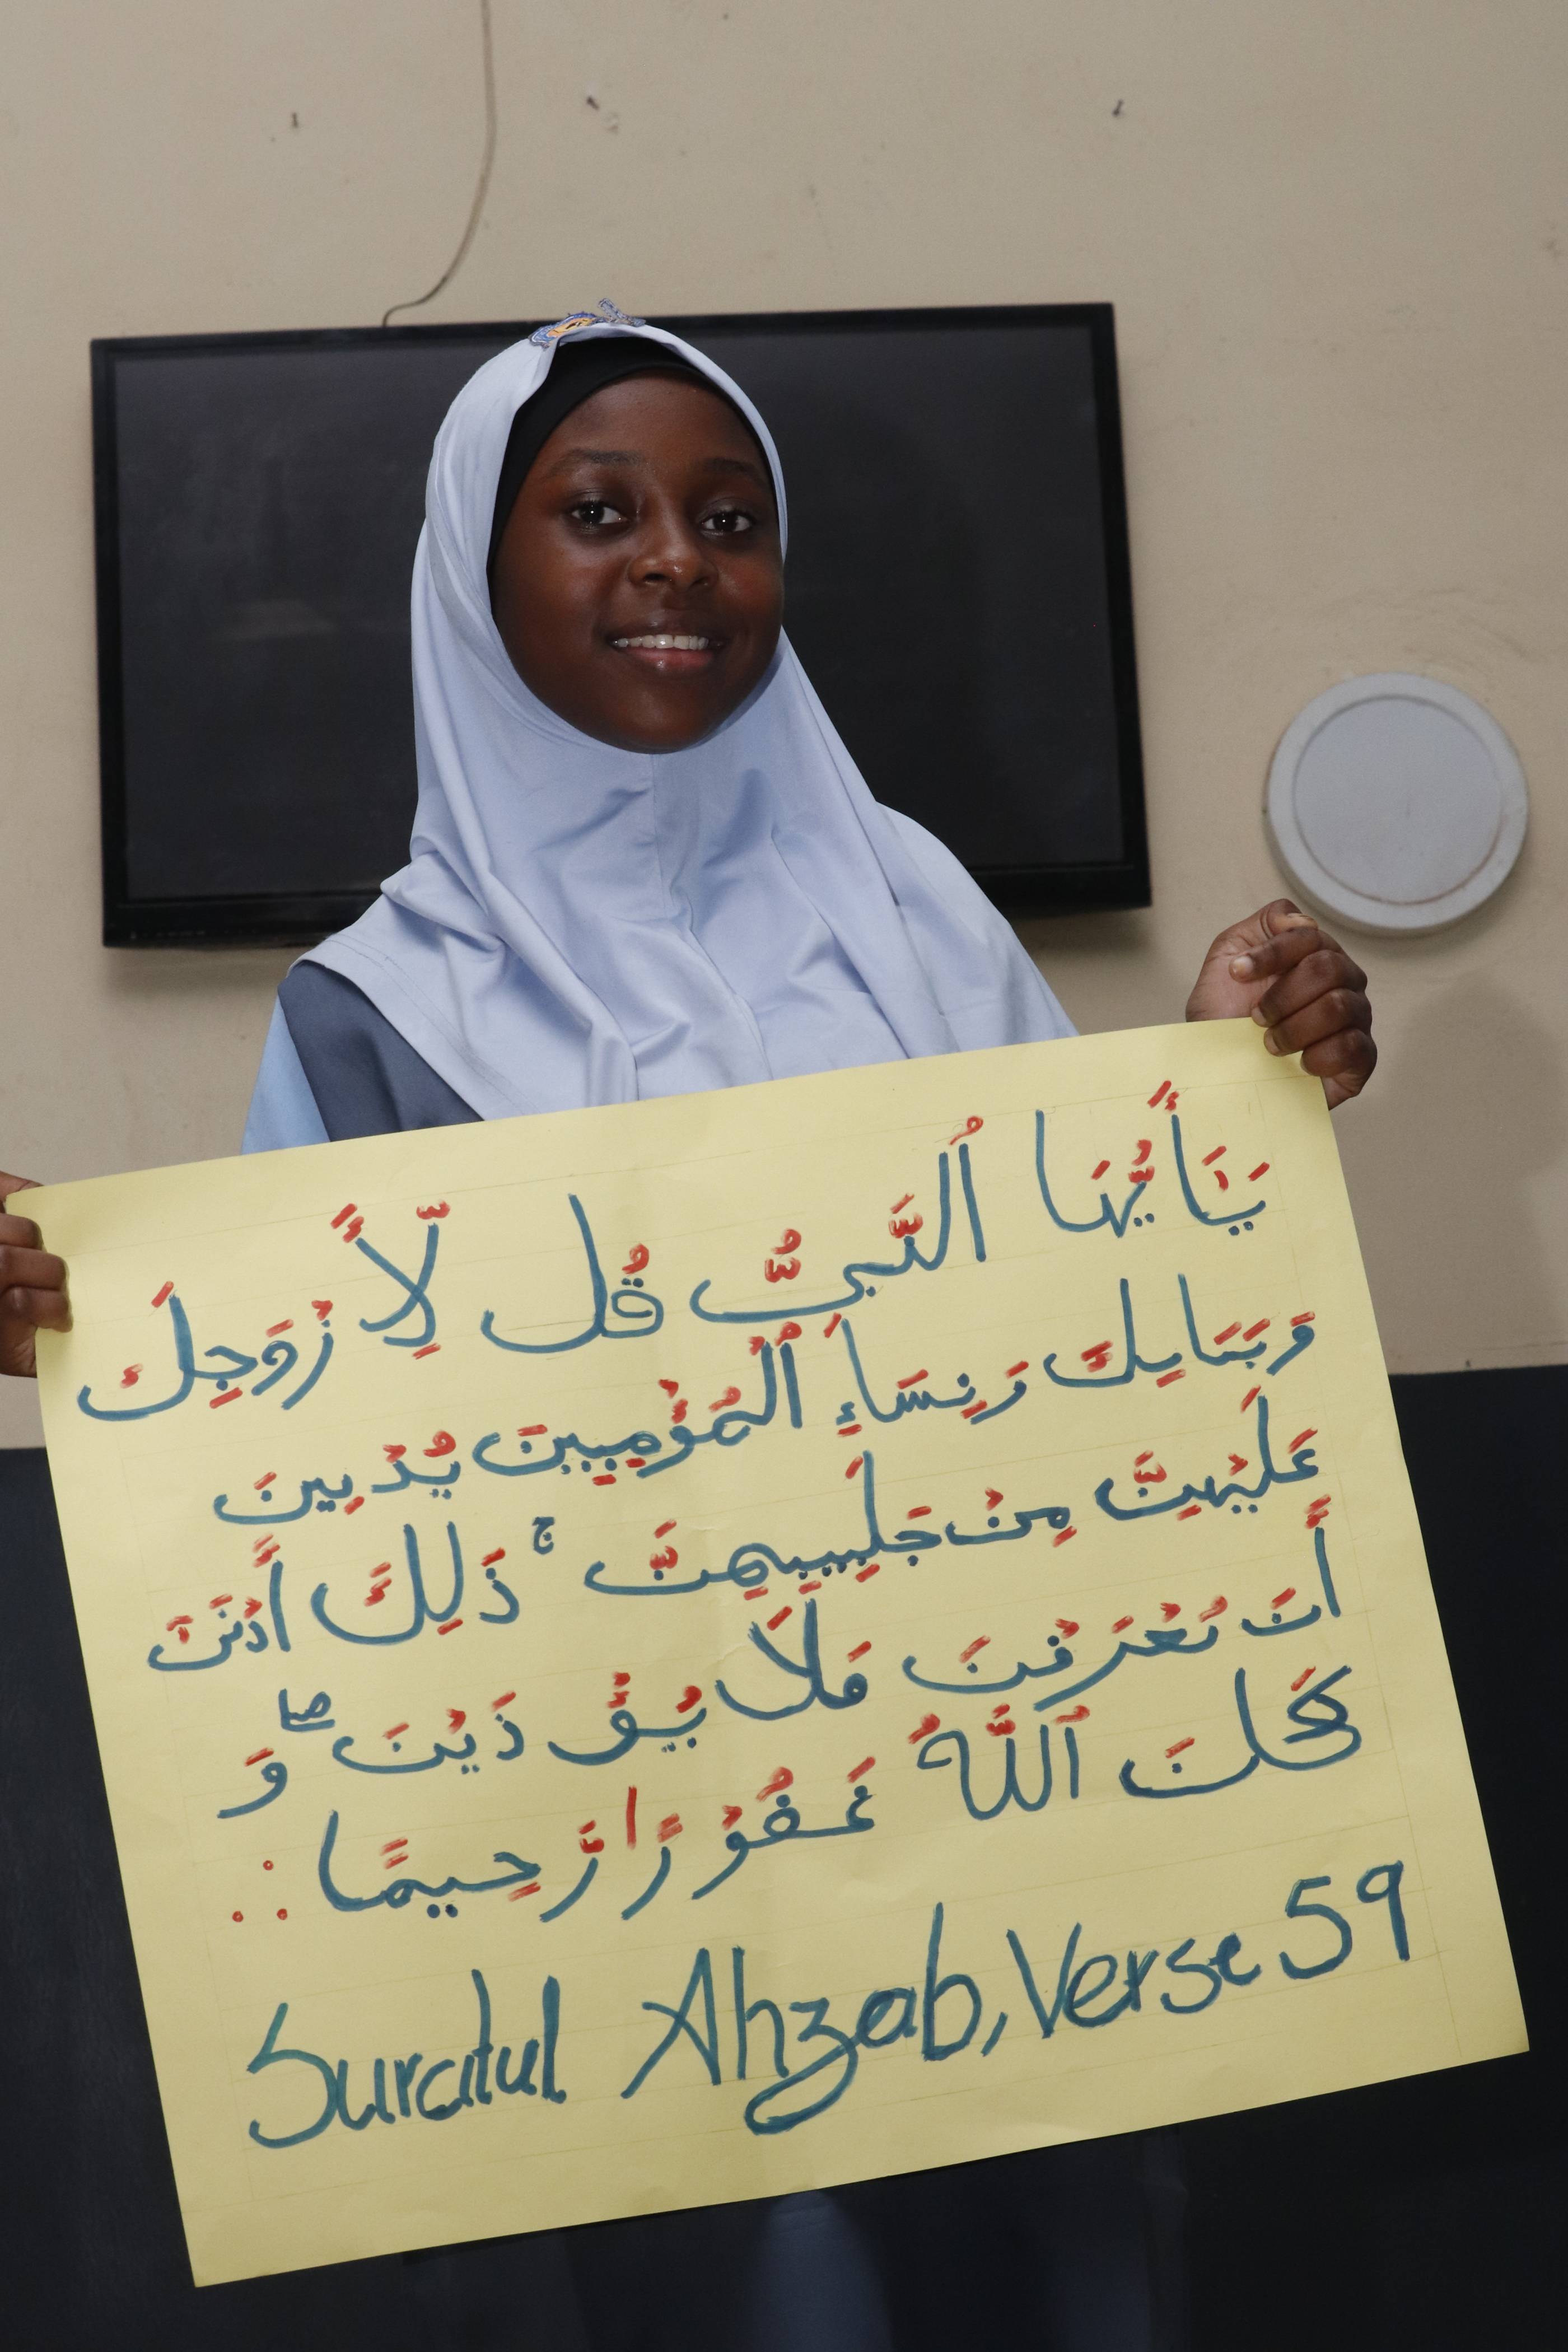 يَـٰٓأَيُّهَا ٱلنَّبِيُّ قُل لِّأَزْوَٰجِكَ
وَبَنَاتِكَ وَنِسَآءِ ٱلْمُؤْمِنِينَ يُدْنِينَ
عَلَيْهِنَّ مِنْ جَلَـٰبِيبِهِنَّ ۚ ذَٰلِكَ أَدْنَىٰٓ
أَن يُعْرَفْنَ فَلَا يُؤْ ذَيْنَ ۗ وَ
كَانَ ٱللَّهُ غَفُوْرًا رَّحِيمًا ∴
Suratul Ahzab, Verse 59